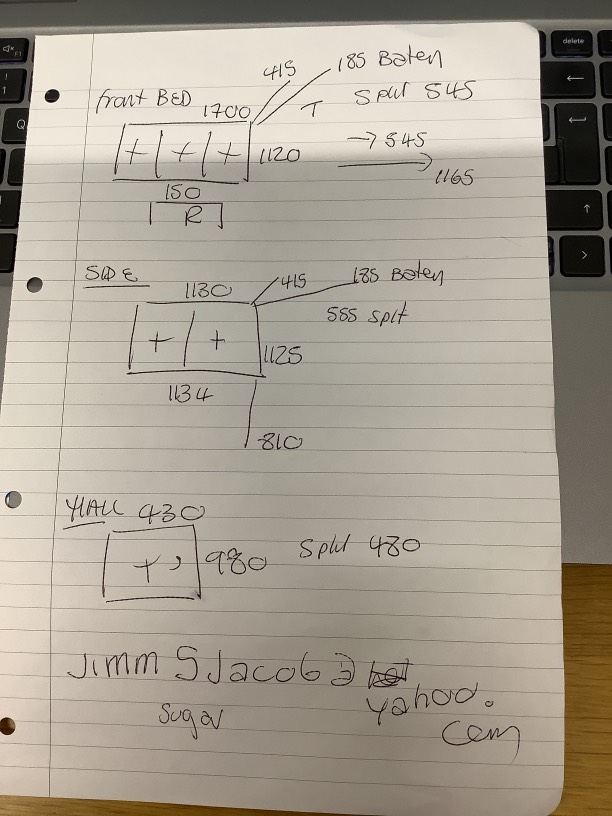 415
185 Baten
front BED
1700
T
Split 545
1120
→ 545
1165
150
R
SIDE
1130
415
185 Baten
555 split
1125
1134
810
HALL 430
980
Split 480
Jimm S Jacob @
yahoo.
com
Sugar
delete
F1